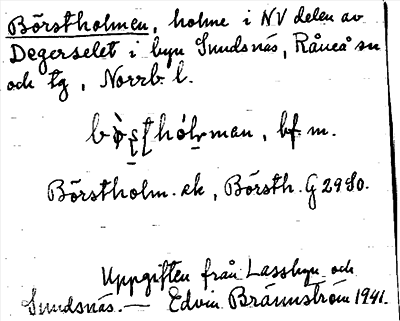 Börstholmen, holme i NV delen av
Degerselet i byn Sundsnäs, Råneå sn
och tg, Norrb. l.
bf. m.
Börstholm. ek, Börsth. G 2980.
Uppgiften från Lassbyn och
Sundsnäs. — Edvin Brännström 1941.